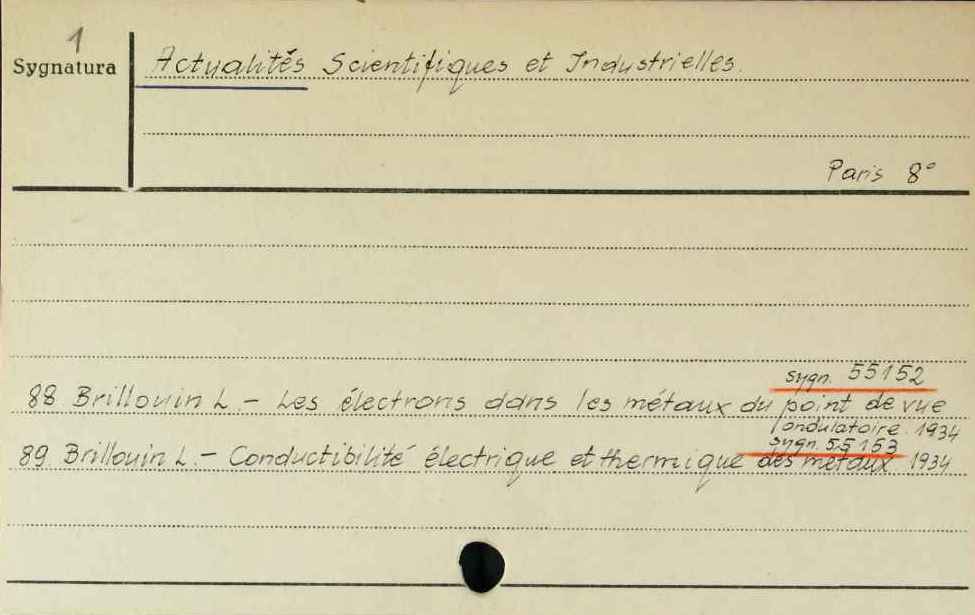 1
Sygnatura
Actualités Scientifiques et Industrielles.
Paris 8°
sygn. 55152
88 Brillouin L. - Les électrons dans les métaux du point de vue
ondulatoire. 1934
sygn. 55153
89. Brillouin L. - Conductibilité électrique et thermique des métaux 1934